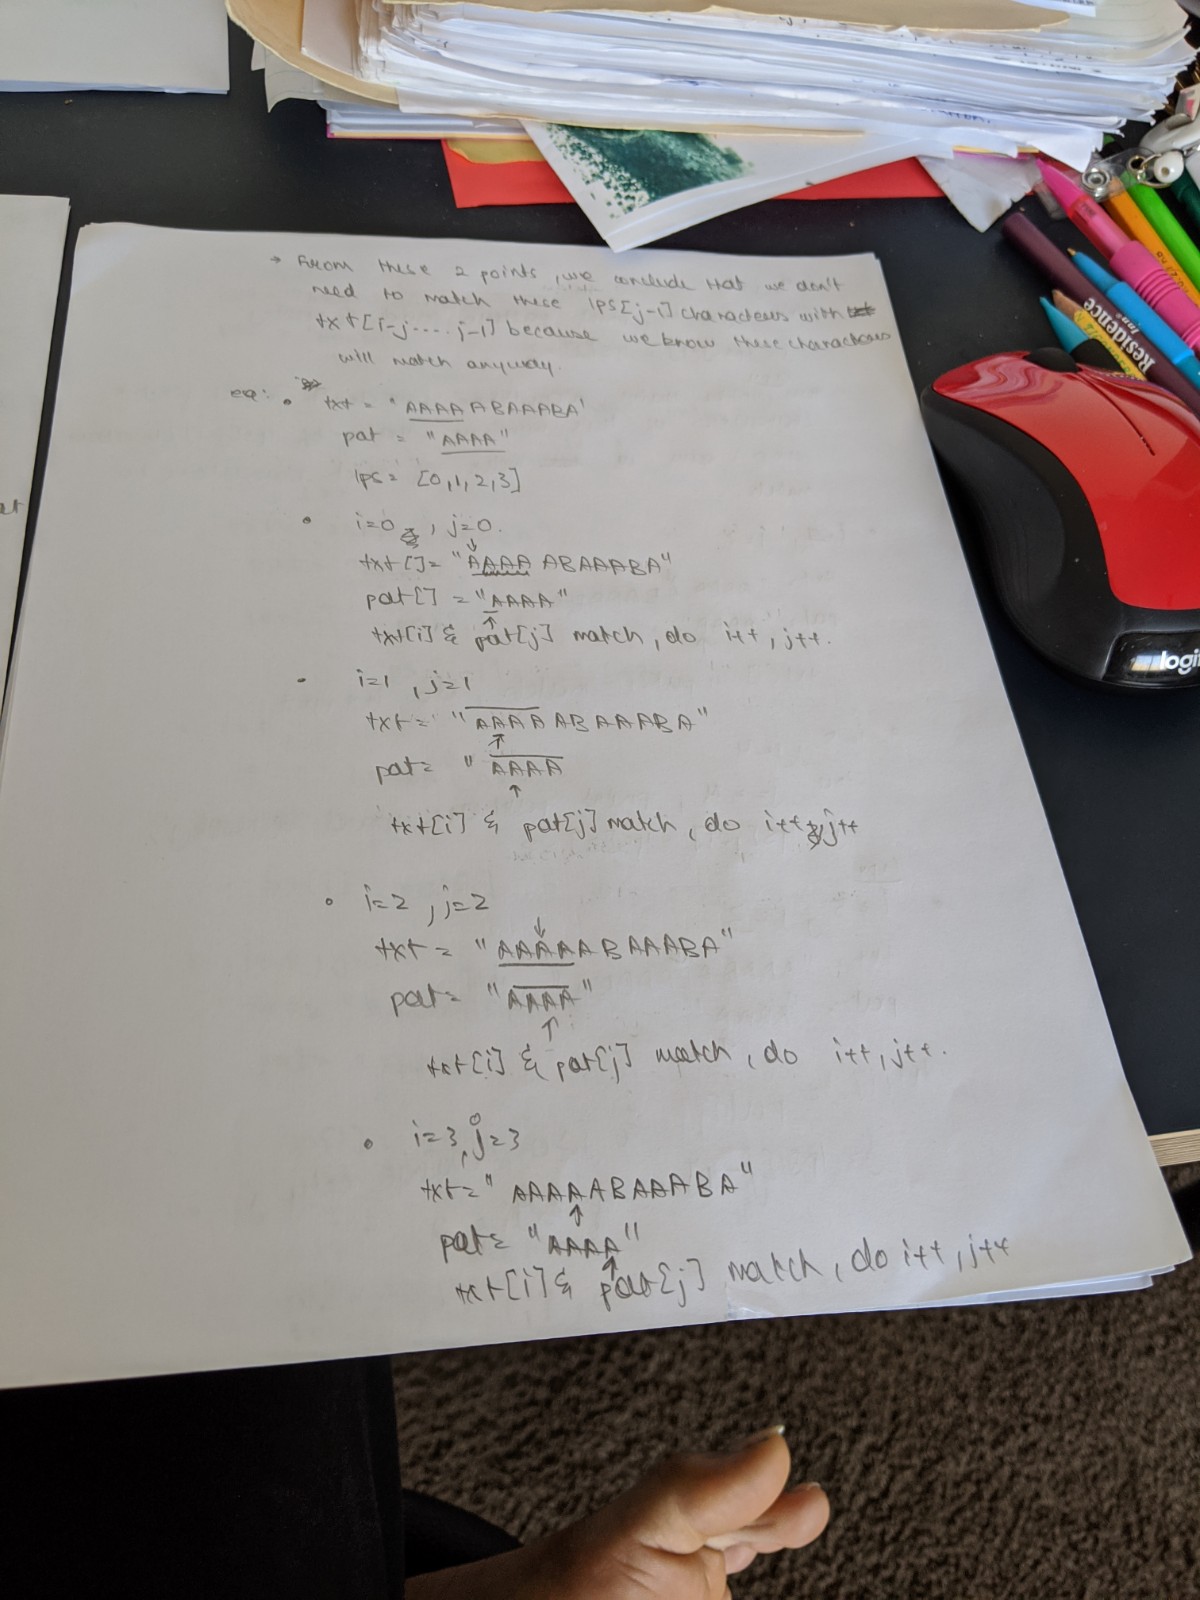 → From these 2 points, we conclude that we don't
need to match these lps[j-1] characters with
txt[i-j....j-1] because we know these characters
will match anyway.
eg: • txt = "AAAAABAAABA"
pat = "AAAA"
lps = [0,1,2,3]
• i=0, j=0.
txt[] = "AAAAABAAABA"
pat[] = "AAAA"
txt[i] & pat[j] match, do i++, j++.
• i=1, j=1
txt = "AAAAABAAABA"
pat = "AAAA
txt[i] & pat[j] match, do i++, j++
• i=2, j=2
txt = "AAAAABAAABA"
pat = "AAAA"
txt[i] & pat[j] match, do i++, j++.
• i=3, j=3
txt = "AAAAABAAABA"
pat = "AAAA"
txt[i] & pat[j] match, do i++, j++
Residence
Inn
logi